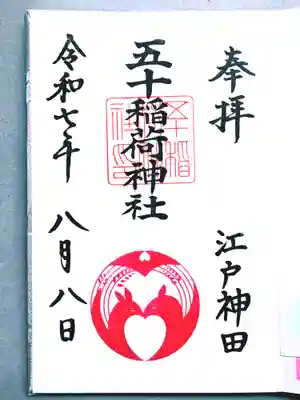 奉拝
江戸神田
五十稲荷神社
令和七年 八月八日